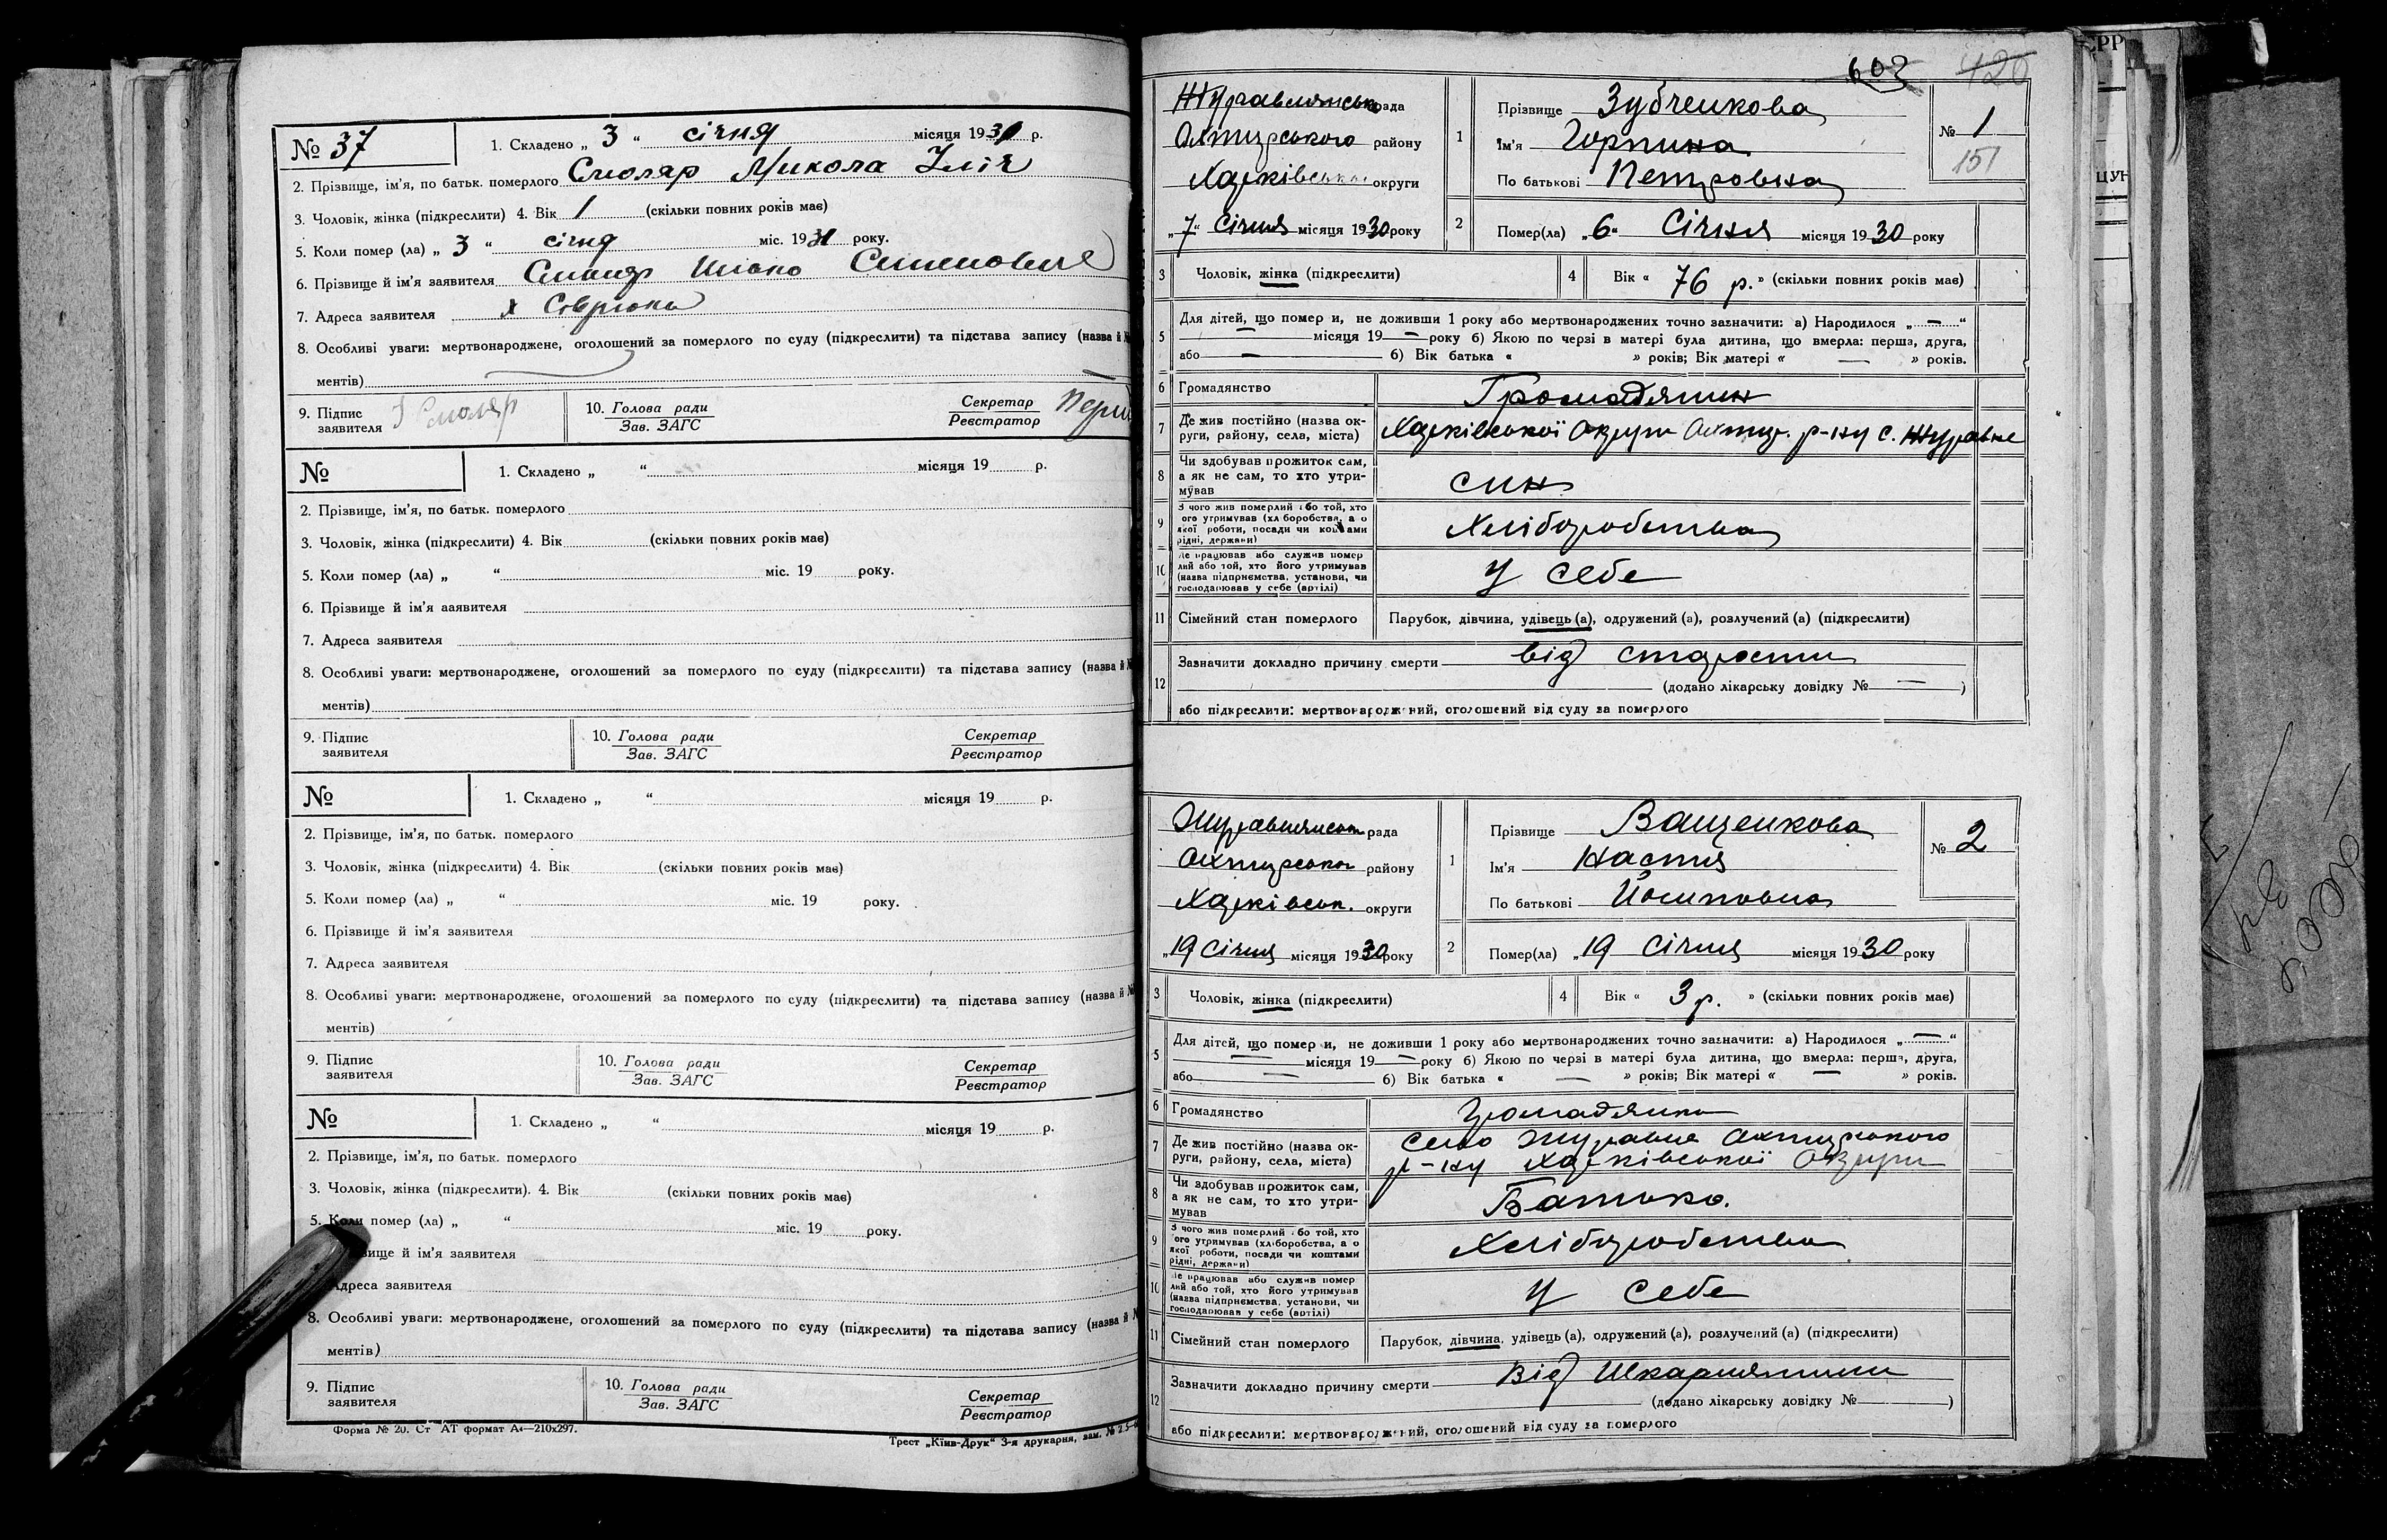 № 37
1. Складено „ 3 “ січня місяця 1931 р.
2. Прізвище, ім'я, по батьк. померлого Смоляр Микола Ілліч
3. Чоловік, жінка (підкреслити) 4. Вік 1 (скільки повних років має)
5. Коли помер (ла) „ 3 “ січня міс. 1931 року.
6. Прізвище й ім'я заявителя
7. Адреса заявителя х
8. Особливі уваги: мертвонароджене, оголошений за померлого по суду (підкреслити) та підстава запису (назва й №
ментів)
9. Підпис заявителя Смоляр
10. Голова ради
Зав. ЗАГС
Секретар
Реєстратор
№
1. Складено „ “ місяця 19 р.
2. Прізвище, ім'я, по батьк. померлого
3. Чоловік, жінка (підкреслити) 4. Вік (скільки повних років має)
5. Коли помер (ла) „ “ міс. 19 року.
6. Прізвище й ім'я ааявителя
7. Адреса заявителя
8. Особливі уваги: мертвонароджене, оголошений за померлого по суду (підкреслити) та підстава запису (назва й №
ментів)
9. Підпис
заявителя
10. Голова ради
Зав. ЗАГС
Секретар
Реєстратор
№
1. Складено „ “ місяця 19 р.
2. Прізвище, ім'я, по батьк. померлого
3. Чоловік, жінка (підкреслити) 4. Вік (скільки повних років має)
5. Коли помер (ла) „ “ міс. 19 року.
6. Прізвище й ім'я заявителя
7. Адреса заявителя
8. Особливі уваги: мертвонароджене, оголошений за померлого по суду (підкреслити) та підстава запису (назва й №
ментів)
9. Підпис
заявителя
10. Голова ради
Зав. ЗАГС
Секретар
Реєстратор
№
1. Складено „ “ місяця 19 р.
2. Прізвище, ім'я, по батьк. померлого
3. Чоловік, жінка (підкреслити). 4. Вік (скільки повних років має)
5. Коли помер (ла) „ “ міс. 19 року.
вище й ім'я заявителя
Адреса заявителя
8. Особливі уваги: мертвонароджене, оголошений за померлого по суду (підкреслити) та підстава запису (назва й №
ментів)
9. Підпис
заявителя
10. Голова ради
Зав. ЗАГС
Секретар
Реєстратор
Форма № 20. Ст АТ формат А4—210х297.
Трест „Київ-Друк“ 3-я друкарня, зам. №
603 420
Журавлянська рада
Охтирського району
Харківської округи
„7“ Січня місяця 1930 року
1 Прізвище Зубченкова
Ім'я Горпина
По батькові Петровна
№ 1
151
2 Помер(ла) „6“ Січня місяця 1930 року
3 Чоловік, жінка (підкреслити)
4 Вік « 76 р. » (скільки повних років має)
5 Для дітей, що помер и, не доживши 1 року або мертвонароджених точно зазначити: а) Народилося „ — “
— місяця 19 — року б) Якою по черзі в матері була дитина, що вмерла: перша, друга,
або — б) Вік батька « » років; Вік матері « — » років.
6 Громадянство Громадянин
7 Де жив постійно (назва округи, району, села, міста) Харківської Округи Охтир. р-ну с. Журавне
8 Чи здобував прожиток сам, а як не сам, то хто утримував син
9 З чого жив померлий або той, хто його утримував (хліборобства, а о якої роботи, посади чи коштами рідні, держави) Хліборобства
10 Де працював або служив помер лий або той, хто його утримував (назва підприємства, установи, чи господарював у себе (артілі) У себе
11 Сімейний стан померлого Парубок, дівчина, удівець (а), одружений (а), розлучений (а) (підкреслити)
12 Зазначити докладно причину смерти від старости
(додано лікарську довідку № — )
або підкреслити: мертвонароджений, оголошений від суду за померлого
Журавлянськ рада
Охтирськог району
Харківськ. округи
„19 Січня місяця 1930 року
1 Прізвище Ващенкова
Ім'я Настя
По батькові Йосиповна
№ 2
2 Помер(ла) „19 Січня місяця 1930 року
3 Чоловік, жінка (підкреслити)
4 Вік « 3 р. » (скільки повних років має)
5 Для дітей, що помер и, не доживши 1 року або мертвонароджених точно зазначити: а) Народилося „ — “
— місяця 19 — року б) Якою по черзі в матері була дитина, що вмерла: перша, друга,
або — б) Вік батька « — » років; Вік матері « — » років.
6 Громадянство Громадянка
7 Де жив постійно (назва округи, району, села, міста) Село Журавне Охтирського
р-ну Харківської Округи
8 Чи здобував прожиток сам, а як не сам, то хто утримував Батько.
9 З чого жив померлий або той, хто його утримував (хліборобства, а о якої роботи, посади чи коштами рідні, держави) Хліборобства
10 Де працював або служив помер лий або той, хто його утримував (назва підприємства, установи, чи господарював у себе (артілі) У себе
11 Сімейний стан померлого Парубок, дівчина, удівець (а), одружений (а), розлучений (а) (підкреслити)
12 Зазначити докладно причину смерти Від Шкарлятини
(додано лікарську довідку № )
або підкреслити: мертвонароджений, оголошений від суду за померлого